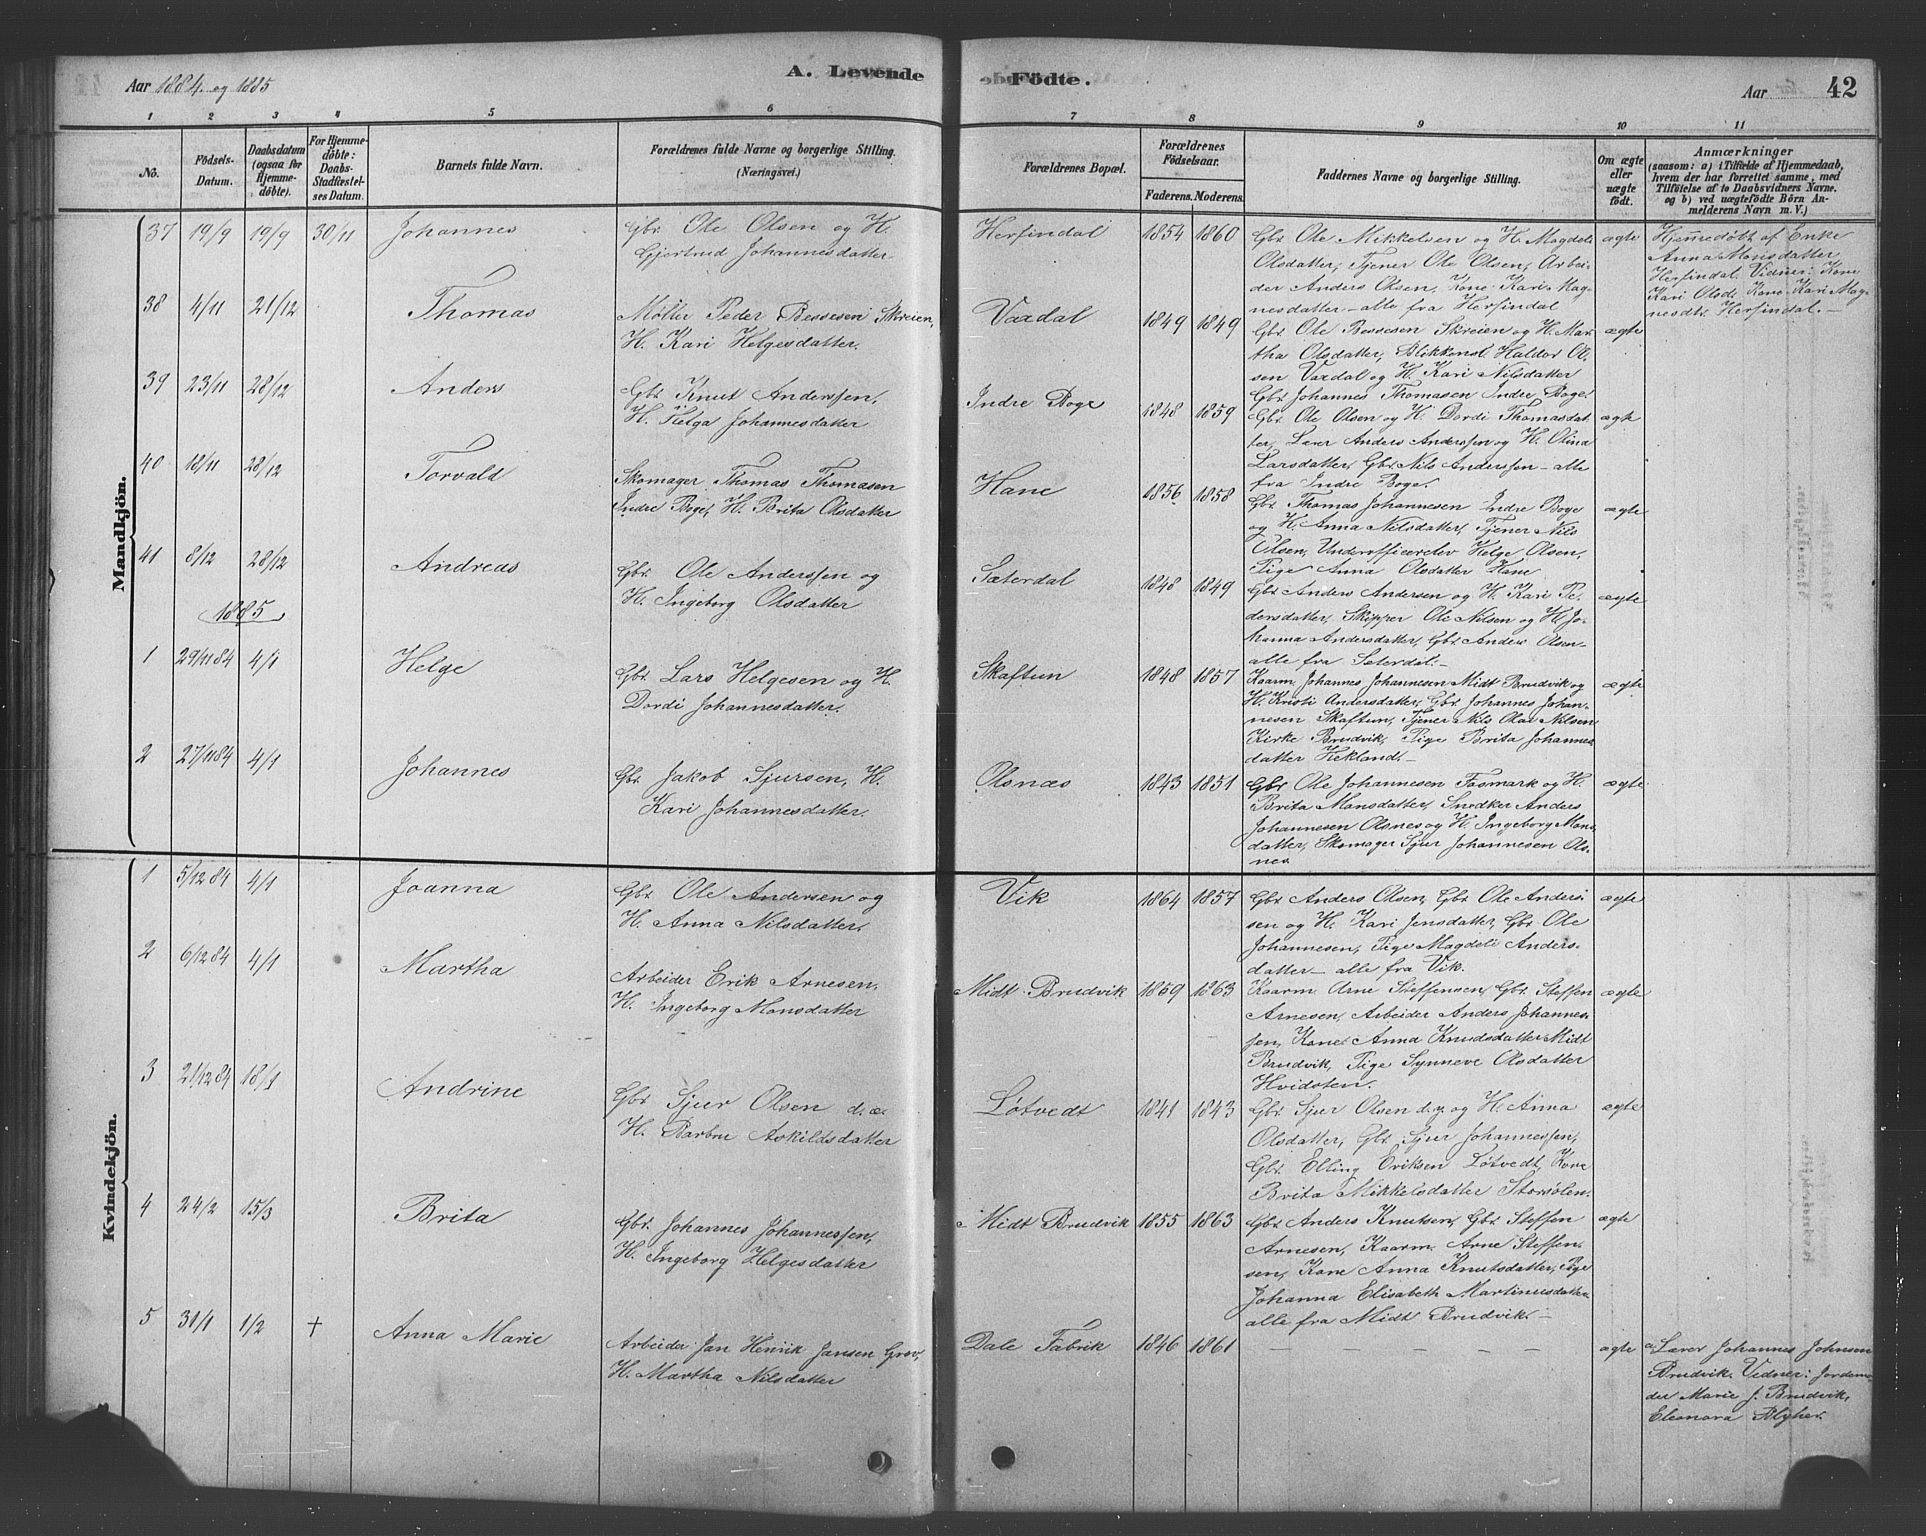 Aar 1884. og 1885
A. Levende
Födte.
Aar
42
1 2 3 4 5 6 7 8 9 10 11
No.
Födsels-
Datum.
Daabsdatum
(ogsaa for
Hjemme-
döbte).
For Hjemme-
döbte:
Daabs-
Stadfæstel-
ses Datum.
Barnets fulde Navn.
Forældrenes fulde Navne og borgerlige Stilling.
(Næringsvei.)
Forældrenes Bopæl.
Forældrenes
Födselsaar.
Faderens. Moderens.
Faddernes Navne og borgerlige Stilling.
Om ægte
eller
uægte
födt.
Anmærkninger
(saasom: a) i Tilfælde af Hjemmedaab,
hvem der har forrettet samme, med
Tilföielse af to Daabsvidners Navne.
og b) ved uægtefödte Börn An-
melderens Navn m. V.)
Mandkjön.
37 19/9 19/9 30/11 Johannes
Gbr. Ole Olsen og H.
Gjertrud Johannesdatter
Herfindal 1854 1860
Gbr. Ole Mikkelsen og H. Magdeli
Olsdatter, Tjener Ole Olsen, Arbei-
der Anders Olsen, Kone Kari Mag-
nesdatter – alle fra Herfindal
ægte
Hjemmedøbt af Enke
Anna Monsdatter
Herfindal. Vidner: Kone
Kari Olsd. Kone Kari Mag-
nesdtr. Herfindal. –
38 4/11 21/12 Thomas
Møller Peder Bessesen Skreien,
H. Kari Helgesdatter.
Vaxdal 1849 1849
Gbr. Ole Bessesen Skreien og H. Mar-
tha Olsdatter, Blikkensl. Haldor Ol-
sen Vaxdal og H. Kari Nilsdatter
Gbr. Johannes Thomasen Indre Boge.
ægte
39 23/11 28/12 Anders
Gbr. Knut Anderssen,
H. Helga Johannesdatter
Indre Boge 1848 1859
Gbr. Ole Olsen og H. Dordi Thomasdat-
ter, Lærer Anders Anderssen og H. Olina
Larsdatter, Gbr. Nils Anderssen – alle
fra Indre Boge.
ægte
40 18/11 28/12 Torvald
Skomager Thomas Thomasen
Indre Boge, H. Brita Olsdatter
Hane 1856 1858
Gbr. Thomas Johannesen Indre Boge
og H. Anna Nilsdatter, Tjener Nils
Olsen, Underofficerelev Helge Olsen,
Pige Anna Olsdatter Hane
ægte
41 8/12 28/12 Andreas
Gbr. Ole Anderssen og
H. Ingeborg Olsdatter
Sæterdal 1848 1849
Gbr. Anders Andersen og H. Kari Pe-
dersdatter, Skipper Ole Nilsen og H. Jo-
hanna Andersdatter, Gbr. Anders Olsen
alle fra Seterdal. –
ægte
1885
1 29/11 84 4/1 Helge
Gbr. Lars Helgesen og H.
Dordi Johannesdatter.
Skaftun 1848 1857
Kaarm. Johannes Johannesen Midt Brudvik og
H. Kristi Andersdatter, Gbr. Johannes Johan-
nesen Skaftun, Tjener Nils Olai Nilsen
Kirke Brudvik, Pige Brita Johannes-
datter Hekland. –
ægte
2 27/11 84 4/1 Johannes
Gbr. Jakob Sjursen, H.
Kari Johannesdatter.
Olsnæs 1843 1851
Gbr Ole Johannesen Fosmark og H.
Brita Monsdatter, Snedker Anders
Johannesen Olsnes og H. Ingeborg Mons-
datter, Skomager Sjur Johannesen Ols-
nes
ægte
Kvindekjön.
1 5/12 84 4/1 Joanna
Gbr. Ole Andersen og
H. Anna Nilsdatter.
Vik 1864 1857
Gbr. Anders Olsen, Gbr. Ole Anders-
sen og H. Kari Jensdatter, Gbr. Ole
Johannesen, Pige Magdeli Anders-
datter – alle fra Vik.
ægte
2 6/12 84 4/1 Martha
Arbeider Erik Arnesen,
H. Ingeborg Monsdatter
Midt Brudvik 1859 1863
Kaarm. Arne Steffensen, Gbr. Steffen
Arnesen, Arbeider Anders Johannes-
sen, Kone Anna Knudsdatter Midt
Brudvik, Pige Synneve Olsdatter
Hvidsten.
ægte
3 21/12 84 18/1 Andrine
Gbr. Sjur Olsen d. æ.
H. Barbru Askildsdatter
Løtvedt 1841 1843
Gbr. Sjur Olsen d. y. og H. Anna
Olsdatter, Gbr. Sjur Johannessen,
Gbr. Elling Eriksen Løtvedt, Kone
Brita Mikkelsdatter Storsølen.
ægte
4 24/2 15/3 Brita
Gbr. Johannes Johannessen,
H. Ingeborg Helgesdatter
Midt Brudvik 1855 1863
Gbr. Anders Knutsen, Gbr. Steffen
Arnesen, Kaarm. Arne Steffen-
sen, Kone Anna Knutsdatter, Pige
Johanna Elisabeth Martinusdatter
alle fra Midt Brudvik. –
ægte
5 31/1 1/2 † Anna Marie
Arbeider Jan Henrik Jansen Grov,
H. Martha Nilsdatter
Dale Fabrik 1846 1861
– – – – – –
ægte
a. Lærer Johannes Johnsen
Brudvik. Vidner: Jordemo-
der Marie J. Brudvik,
Eleonora